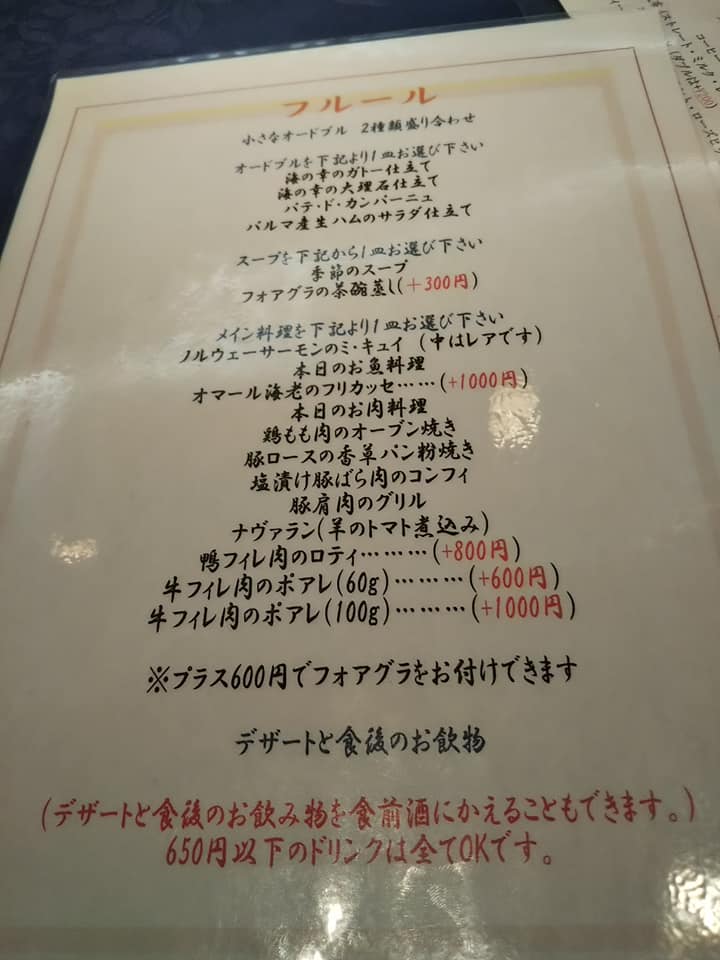 フルール
小さなオードブル 2種類盛り合わせ
オードブルを下記より1皿お選び下さい
海の幸のガトー仕立て
海の幸の大理石仕立て
パテ・ド・カンパーニュ
パルマ産生ハムのサラダ仕立て
スープを下記から1皿お選び下さい
季節のスープ
フォアグラの茶碗蒸し(+300円)
メイン料理を下記より1皿お選び下さい
ノルウェーサーモンのミ・キュイ (中はレアです)
本日のお魚料理
オマール海老のフリカッセ……(+1000円)
本日のお肉料理
鶏もも肉のオーブン焼き
豚ロースの香草パン粉焼き
塩漬け豚ばら肉のコンフィ
豚肩肉のグリル
ナヴァラン(羊のトマト煮込み)
鴨フィレ肉のロティ………(+800円)
牛フィレ肉のポアレ(60g)………(+600円)
牛フィレ肉のポアレ(100g)………(+1000円)
※プラス600円でフォアグラをお付けできます
デザートと食後のお飲物
(デザートと食後のお飲み物を食前酒にかえることもできます。)
650円以下のドリンクは全てOKです。
コーヒー
(ストレート・ミルク・レ
(ダブルは+200)
ト・ローズヒッ